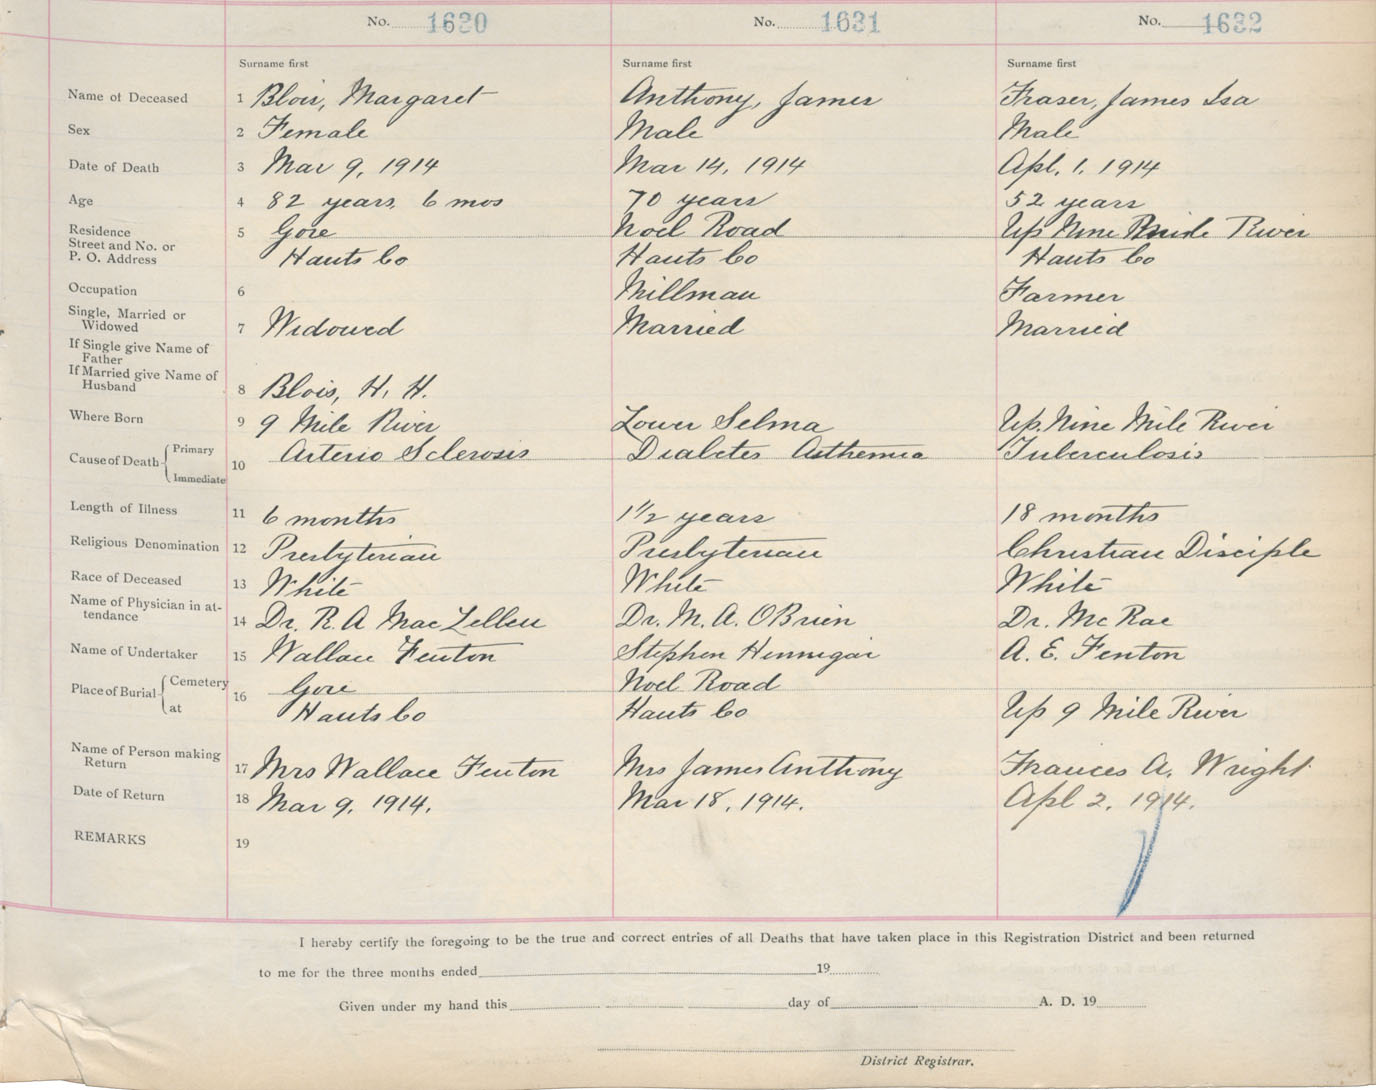 No. 1630 No. 1631 No. 1632
Surname first Surname first Surname first
Name of Deceased 1 Blois, Margaret Anthony, James Fraser, James Isa
Sex 2 Female Male Male
Date of Death 3 Mar 9, 1914 Mar 14, 1914 Apl. 1, 1914
Age 4 82 years, 6 mos 70 years 52 years
Residence 5 Gore Noel Road Up Nine Mile River
Street and No. or
P. O. Address Hants Co Hants Co Hants Co
Occupation 6 Millman Farmer
Single, Married or
Widowed 7 Widowed Married Married
If Single give Name of
Father
If Married give Name of
Husband 8 Blois, H. H.
Where Born 9 9 Mile River Lower Selma Up. Nine Mile River
Cause of Death Primary 10 Arterio Sclerosis Diabetes Asthemia Tuberculosis
Immediate
Length of Illness 11 6 months 1 1/2 years 18 months
Religious Denomination 12 Presbyterian Presbyterian Christian Disciple
Race of Deceased 13 White White White
Name of Physician in at-
tendance 14 Dr. R. A MacLellen Dr. M. A. OBrien Dr. McRae
Name of Undertaker 15 Wallace Fenton Stephen Hennigar A. E. Fenton
Place of Burial Cemetery 16 Gore Noel Road
at Hants Co Hants Co Up 9 Mile River
Name of Person making
Return 17 Mrs Wallace Fenton Mrs James Anthony Frances A. Wright
Date of Return 18 Mar 9, 1914. Mar 18, 1914. Apl 2, 1914.
REMARKS 19
I hereby certify the foregoing to be the true and correct entries of all Deaths that have taken place in this Registration District and been returned
to me for the three months ended 19
Given under my hand this day of A. D. 19
District Registrar.